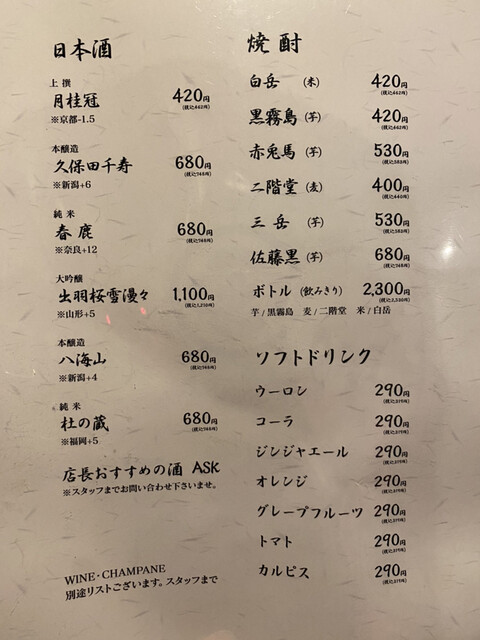 日本酒
上撰
月桂冠 420円
(税込462円)
※京都-1.5
本醸造
久保田千寿 680円
(税込748円)
※新潟+6
純米
春鹿 680円
(税込748円)
※奈良+12
大吟醸
出羽桜雪漫々 1,100円
(税込1,210円)
※山形+5
本醸造
八海山 680円
(税込748円)
※新潟+4
純米
杜の蔵 680円
(税込748円)
※福岡+5
店長おすすめの酒 ASK
※スタッフまでお問い合わせ下さいませ。
WINE・CHAMPANE
別途リストございます。スタッフまで
焼酎
白岳 (米) 420円
(税込462円)
黒霧島 (芋) 420円
(税込462円)
赤兎馬 (芋) 530円
(税込583円)
二階堂 (麦) 400円
(税込440円)
三岳 (芋) 530円
(税込583円)
佐藤黒 (芋) 680円
(税込748円)
ボトル (飲みきり) 2,300円
芋/黒霧島 麦/二階堂 米/白岳
ソフトドリンク
ウーロン 290円
(税込319円)
コーラ 290円
(税込319円)
ジンジャエール 290円
(税込319円)
オレンジ 290円
(税込319円)
グレープフルーツ 290円
(税込319円)
トマト 290円
(税込319円)
カルピス 290円
(税込319円)